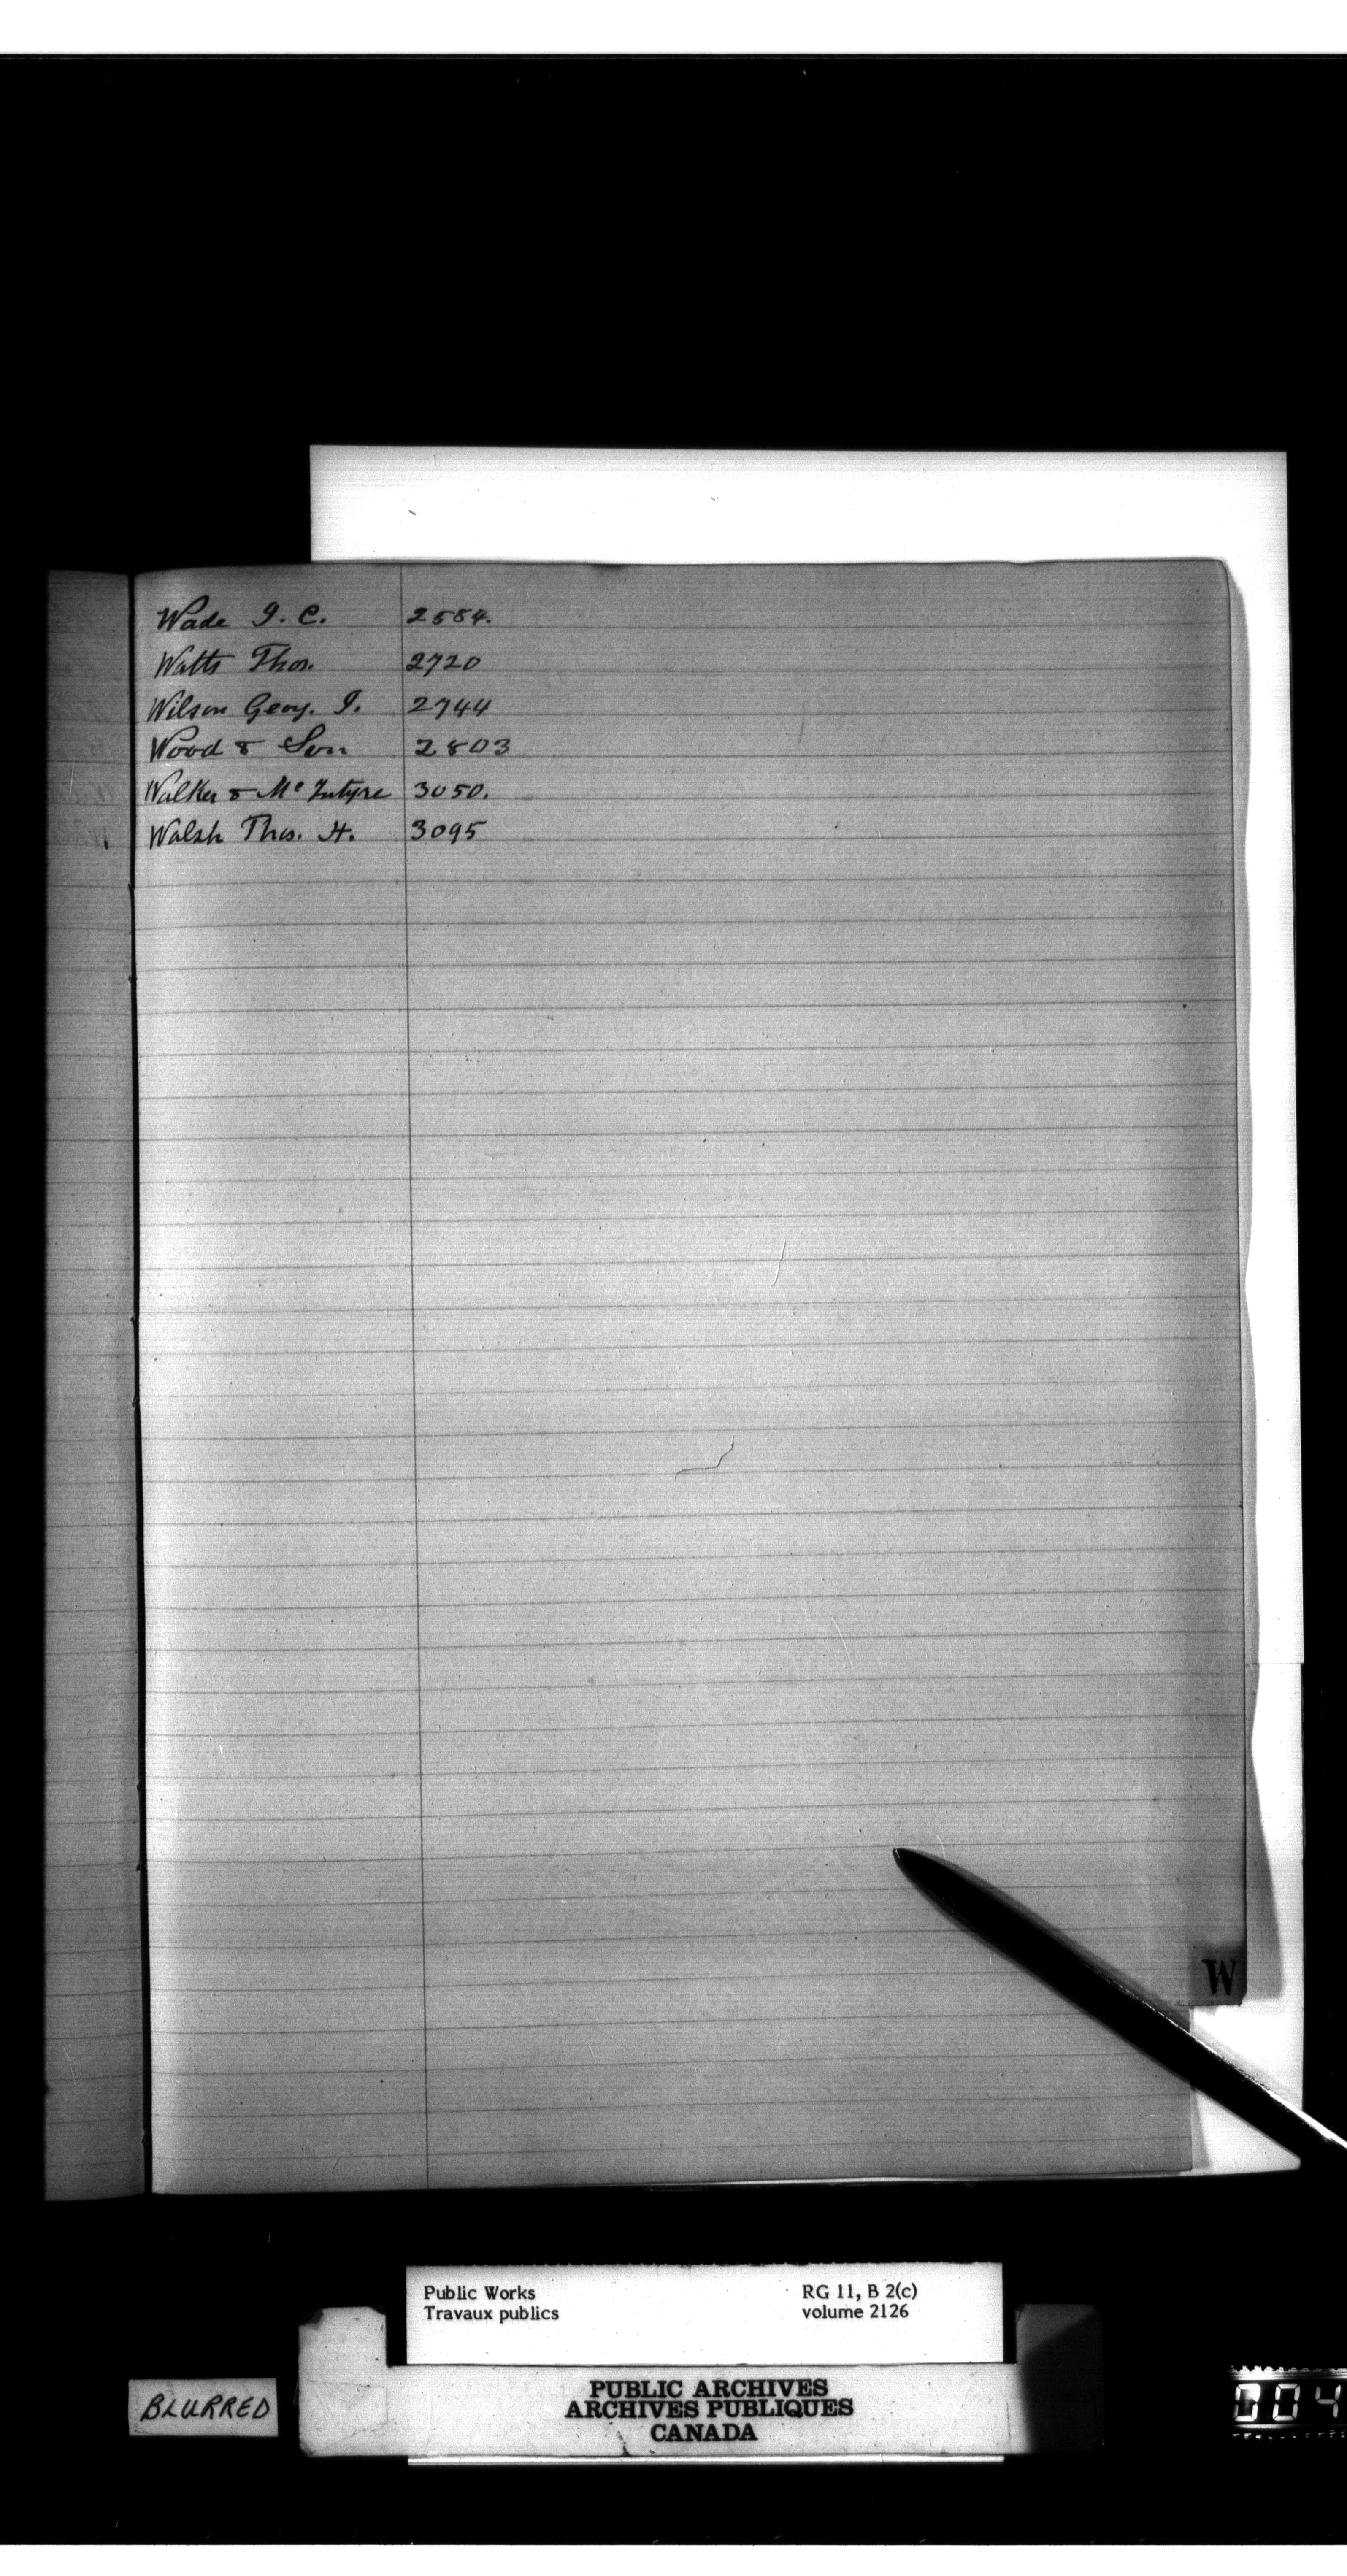 Wade J. C. 2584.
Watts Thos. 2720
Wilson Geoy. J. 2744
Wood & Son 2803
Walker & Mc Intyre 3050.
Walsh Thos. H. 3095
W
Public Works RG 11, B 2(c)
Travaux publics volume 2126
PUBLIC ARCHIVES
ARCHIVES PUBLIQUES
CANADA
BLURRED
004